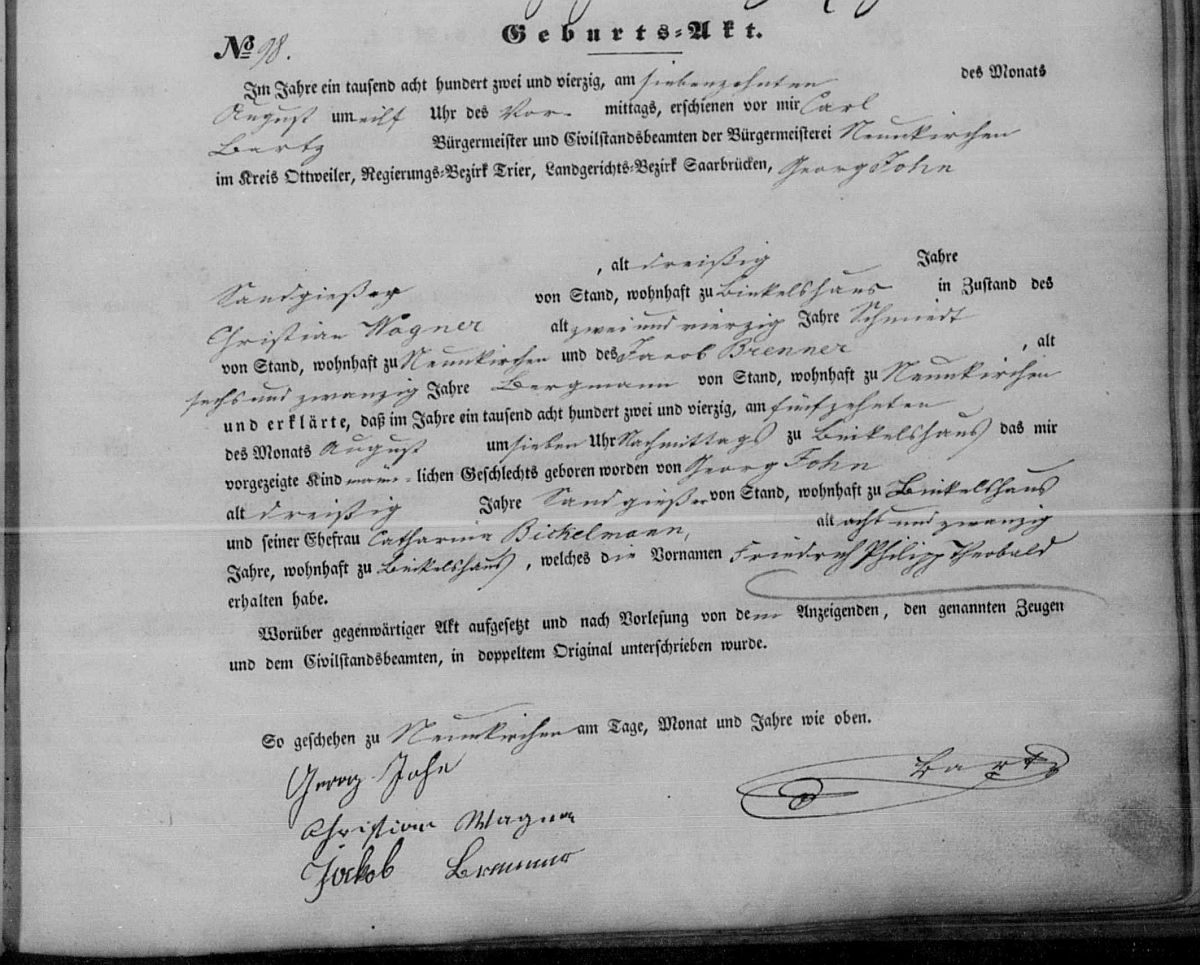 Geburts-Akt.
No 98.
Im Jahre ein tausend acht hundert zwei und vierzig, am siebenzehnten des Monats
August um eilf Uhr des Vor- mittags, erschienen vor mir Carl
Bartz Bürgermeister und Civilstandsbeamten der Bürgermeisterei Neunkirchen
im Kreis Ottweiler, Regierungs-Bezirk Trier, Landgerichts-Bezirk Saarbrücken, Georg John
, alt dreißig Jahre
Sandgießer von Stand, wohnhaft zu Binkelshaus in Zustand des
Christian Wagner alt zwei und vierzig Jahre Schmiedt
von Stand, wohnhaft zu Neunkirchen und des Jacob Brenner , alt
sechs und zwanzig Jahre Bergmann von Stand, wohnhaft zu Neunkirchen
und erklärte, daß im Jahre ein tausend acht hundert zwei und vierzig, am fünfzehnten
des Monats August um sieben Uhr Nachmittags zu Binkelshaus das mir
vorgezeigte Kind männ-lichen Geschlechts geboren worden von Georg John
alt dreißig Jahre Sandgießer von Stand, wohnhaft zu Binkelshaus
und seiner Ehefrau Catharina Bickelmann, alt acht und zwanzig
Jahre, wohnhaft zu Binkelshaus, welches die Vornamen Friedrich Philipp Theobald
erhalten habe.
Worüber gegenwärtiger Akt aufgesetzt und nach Vorlesung von dem Anzeigenden, den genannten Zeugen
und dem Civilstandsbeamten, in doppeltem Original unterschrieben wurde.
So geschehen zu Neunkirchen am Tage, Monat und Jahre wie oben.
Georg John
Bartz
Christian Wagner
Jackob Brenner